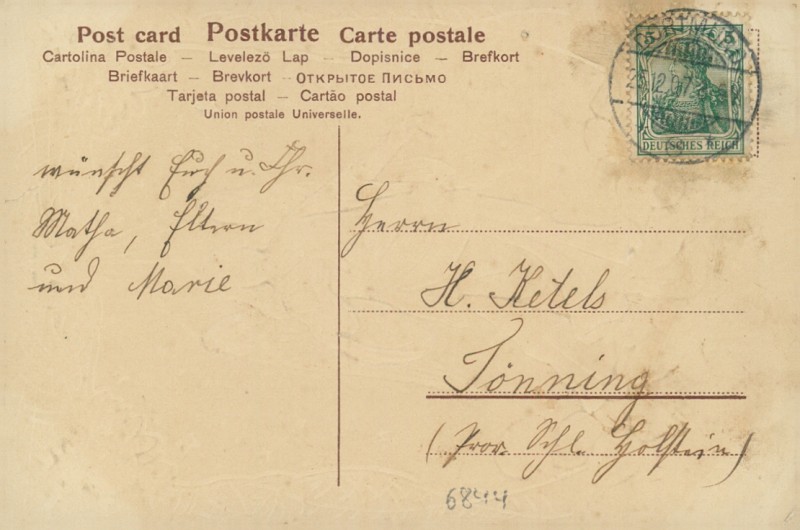 Post card Postkarte Carte postale
Cartolina Postale — Levelező Lap — Dopisnice — Brefkort
Briefkaart — Brevkort — ОТКРЫТОЕ ПИСЬМО
Tarjeta postal — Cartão postal
Union postale Universelle.
DEUTSCHES REICH
wünscht Euch u. Ihr.
Matha, Eltern
und Marie
Herrn
H. Ketels
Tönning
(Prov. Schl. Holstein)
6844